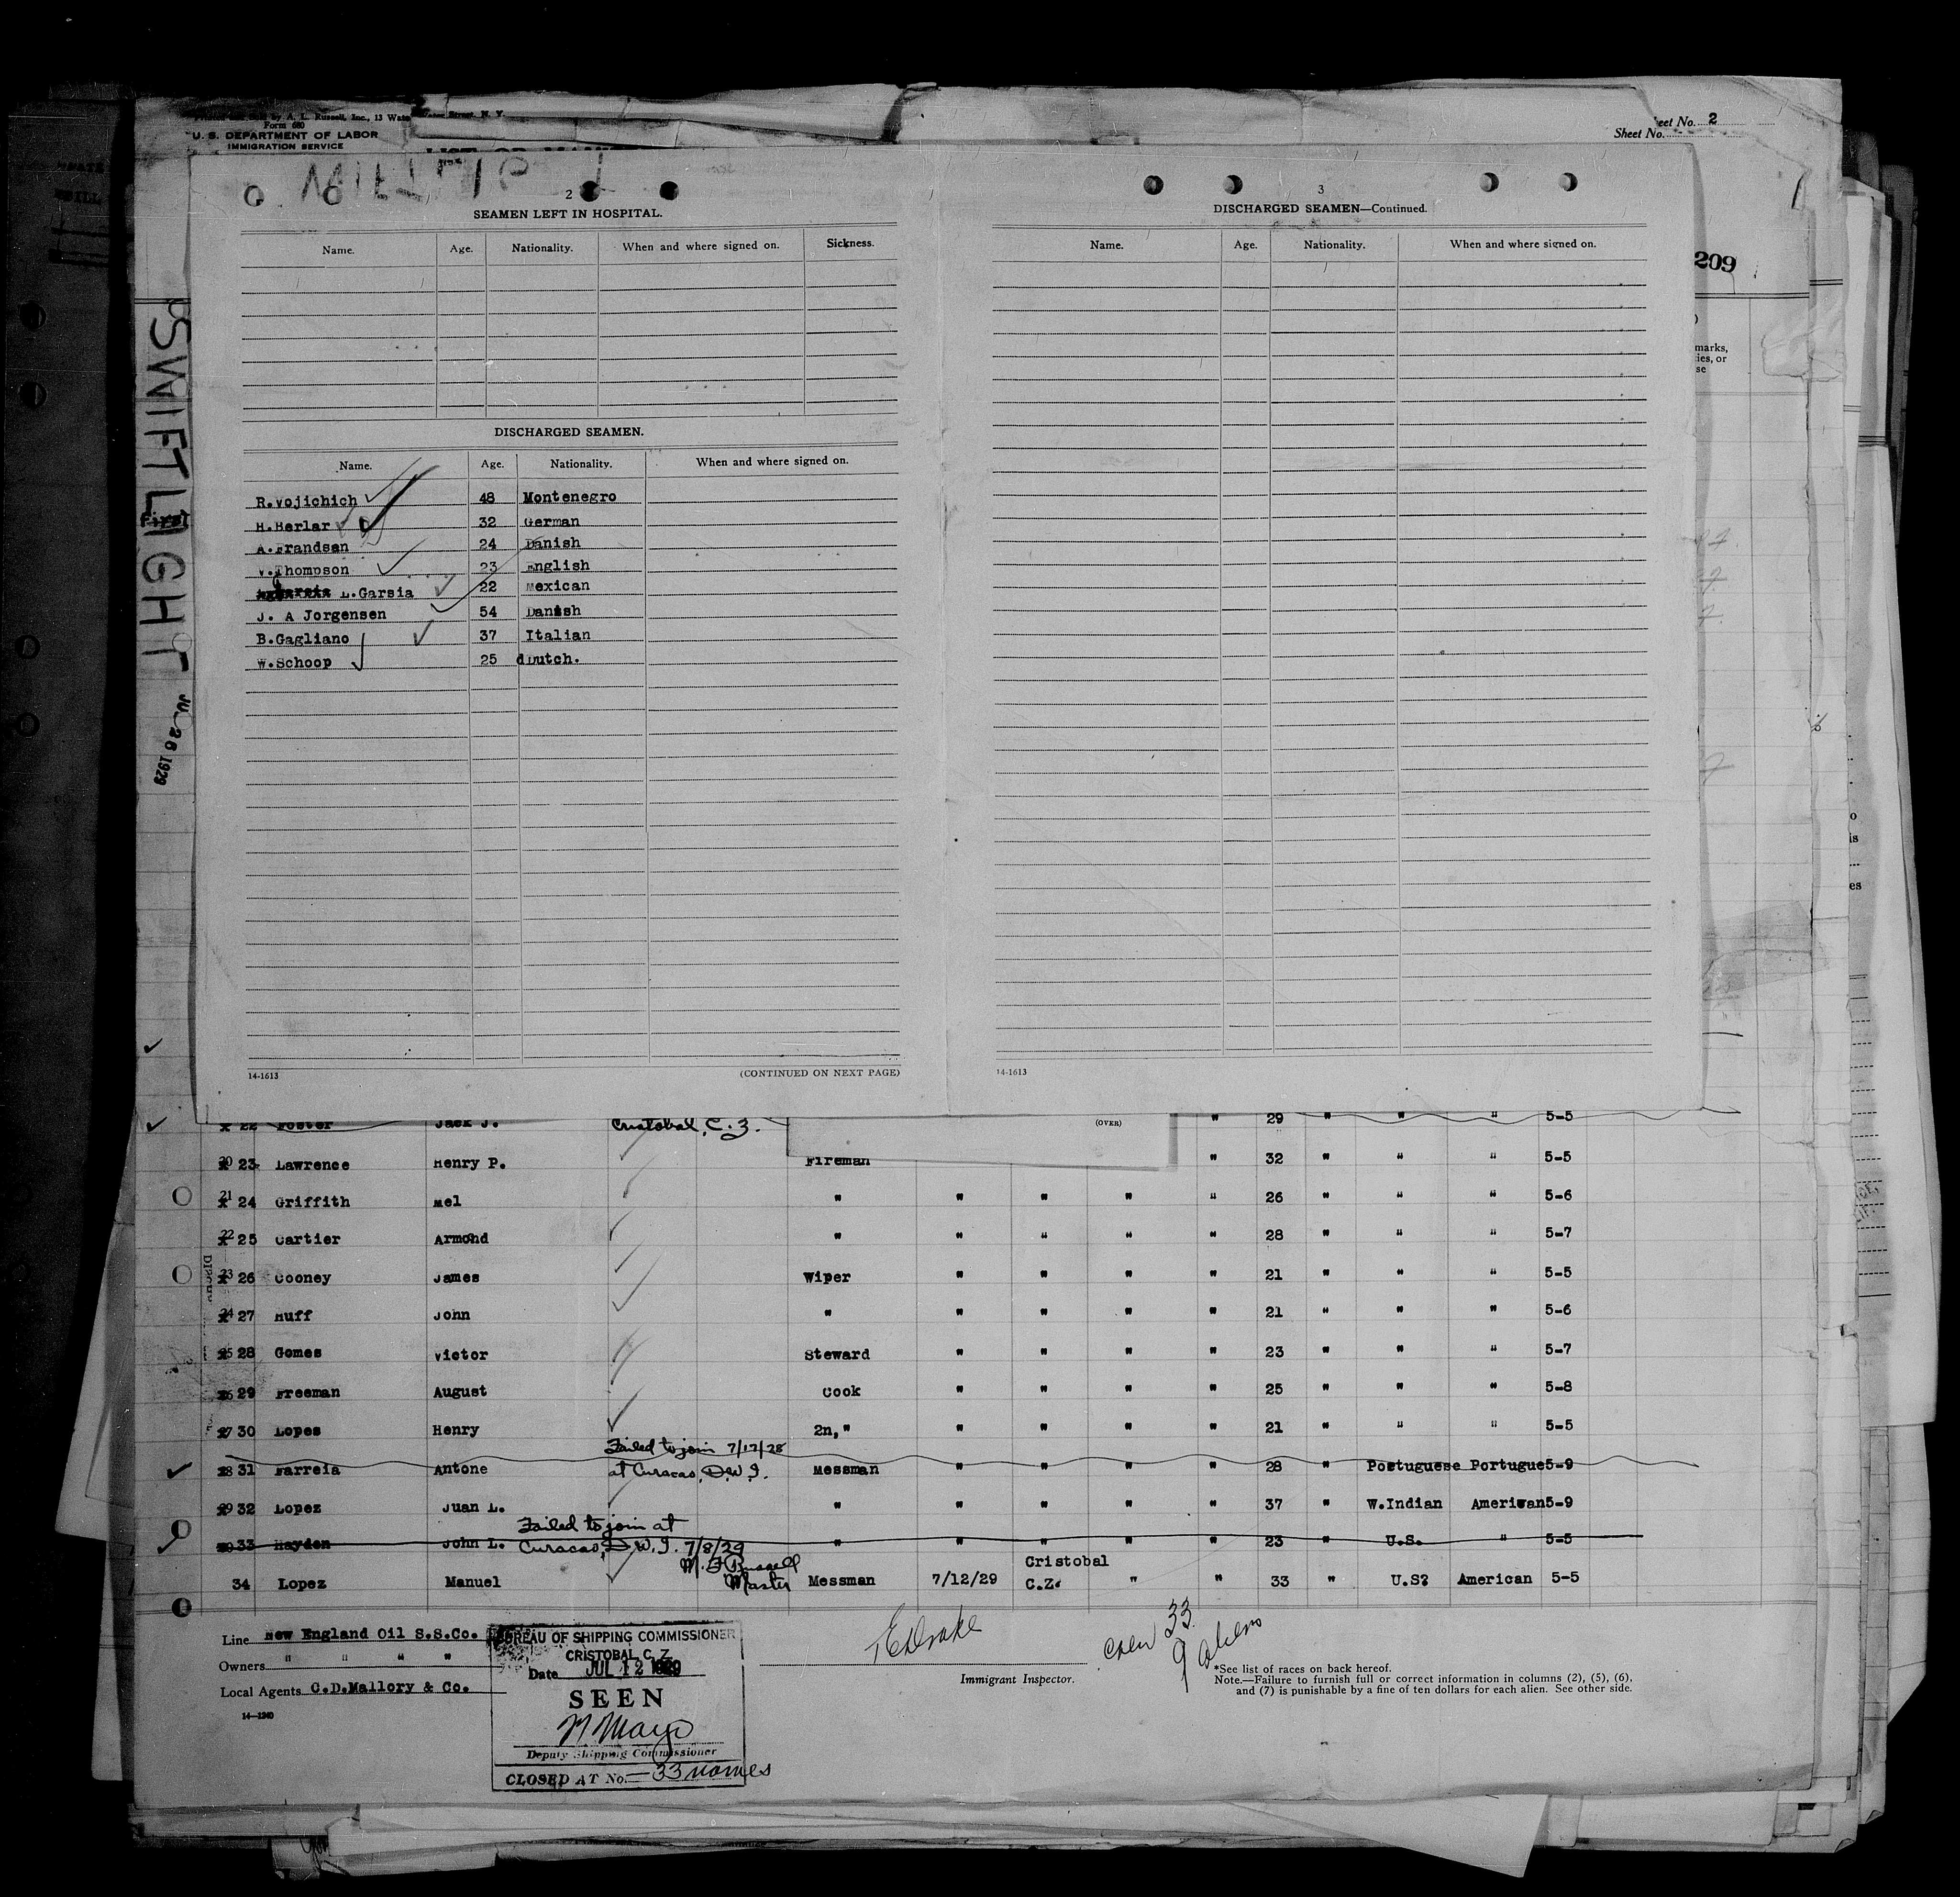 Form 680
U. S. DEPARTMENT OF LABOR
IMMIGRATION SERVICE
Sheet No. 2
Sheet No.
209
marks,
ies, or
se
SWIFTLIGHT
First
JUL 26 1929
2
SEAMEN LEFT IN HOSPITAL.
Name. Age. Nationality. When and where signed on. Sickness.
DISCHARGED SEAMEN.
Name. Age. Nationality. When and where signed on.
R.Vojichich 48 Montenegro
H.Herlar 32 German
A.Frandsen 24 Danish
V.Thompson 23 English
L.Garsia 22 Mexican
J. A Jorgensen 54 Danish
B.Gagliano 37 Italian
W.Schoop 25 dDutch.
14-1613 (CONTINUED ON NEXT PAGE)
3
DISCHARGED SEAMEN—Continued.
Name. Age. Nationality. When and where signed on.
14-1613
(OVER)
22 Foster Jack J. Cristobal, C.Z. " 29 " " " 5-5
20 23 Lawrence Henry P. Fireman " 32 " " " 5-5
21 24 Griffith Mel " " " " " 26 " " " 5-6
22 25 Cartier Armond " " " " " 28 " " " 5-7
23 26 Cooney James Wiper " " " " 21 " " " 5-5
24 27 Huff John " " " " " 21 " " " 5-6
25 28 Gomes Victor Steward " " " " 23 " " " 5-7
26 29 Freeman August Cook " " " " 25 " " " 5-8
27 30 Lopes Henry 2n," " " " " 21 " " " 5-5
Failed to join 7/17/28
28 31 Farreia Antone at Curacao, D.W.I. Messman " " " " 28 " Postuguese Portugue5-9
29 32 Lopez Juan L. " " " " " 37 " W.Indian American5-9
Failed to join at
30 33 Hayden John L. Curacao, D.W.I. 7/8/29 " " " " " 23 " U.S. " 5-5
M. F. Russell
Master
34 Lopez Manuel Messman 7/12/29 Cristobal C.Z. " " 33 " U.S? American 5-5
Line New England Oil S.S.Co.
Owners " " " "
Local Agents C.D.Mallory & Co.
14—1240
BUREAU OF SHIPPING COMMISSIONER
CRISTOBAL C. Z.
Date JUL 12 1929
SEEN
Deputy Shipping Commissioner
CLOSED AT No.—33 names
Immigrant Inspector.
Crew 33
9 aliens
*See list of races on back hereof.
Note.—Failure to furnish full or correct information in columns (2), (5), (6),
and (7) is punishable by a fine of ten dollars for each alien. See other side.